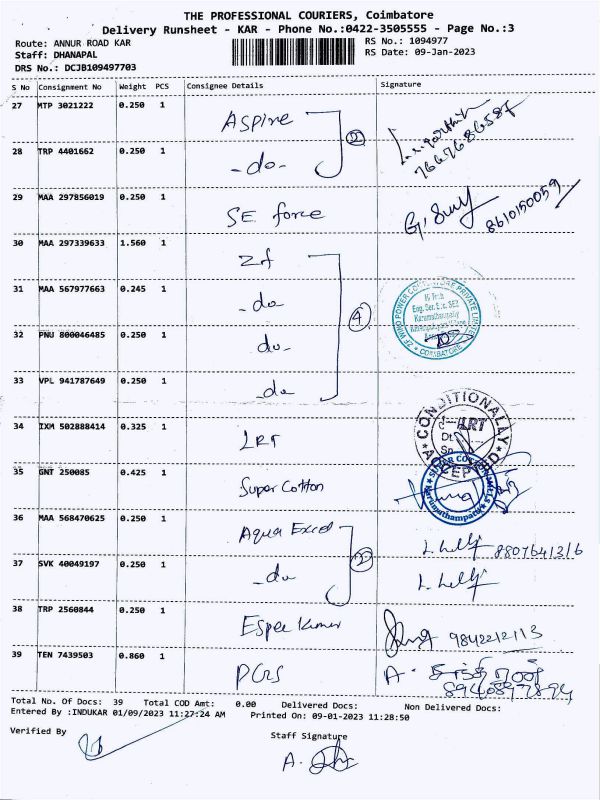 THE PROFESSIONAL COURIERS, Coimbatore
Delivery Runsheet - KAR - Phone No.:0422-3505555 - Page No.:3
Route: ANNUR ROAD KAR
Staff: DHANAPAL
DRS No.: DCJB109497703
RS No.: 1094977
RS Date: 09-Jan-2023
S No Consignment No Weight PCS Consignee Details Signature
27 MTP 3021222 0.250 1 Aspire
2
7667686587
28 TRP 4401662 0.250 1 -do-
29 MAA 297856019 0.250 1 SE force 8610150059
30 MAA 297339633 1.560 1 Zf
31 MAA 567977663 0.245 1 -do-
4
ZF WIND POWER COIMBATORE PRIVATE LIMITED
Karumathampatty
COIMBATORE
32 PNU 800046485 0.250 1 do-
33 VPL 941787649 0.250 1 -do
34 IXM 502888414 0.325 1 LRT
CONDITIONALAY ACCEPTED
LRT
35 GNT 250085 0.425 1 Super Cotton
Karumathampatty
36 MAA 568470625 0.250 1 Aqua Excel
2
37 SVK 40049197 0.250 1 -do
38 TRP 2560844 0.250 1 Espee Kumar 9842212113
39 TEN 7439503 0.860 1 PGRS A.
8940897894
Total No. Of Docs: 39 Total COD Amt: 0.00 Delivered Docs: Non Delivered Docs:
Entered By :INDUKAR 01/09/2023 11:27:24 AM Printed On: 09-01-2023 11:28:50
Verified By Staff Signature
A.